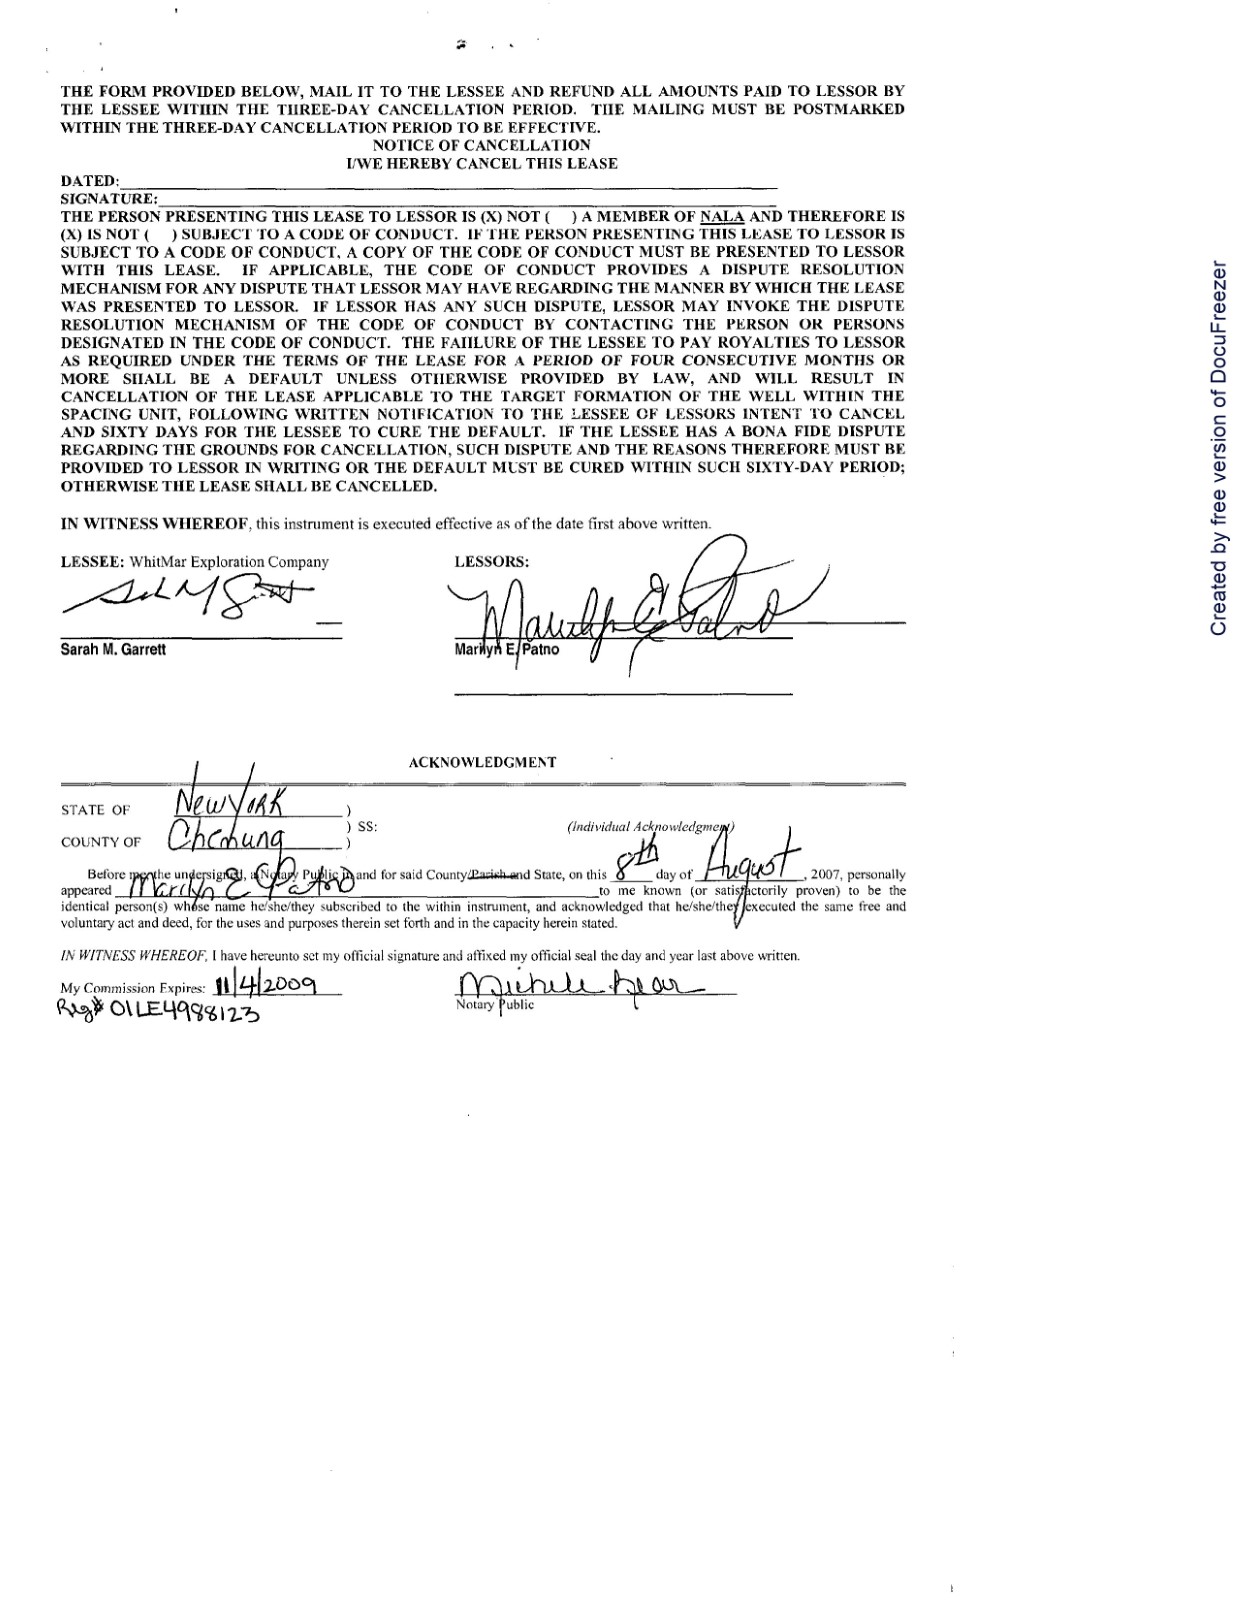 THE FORM PROVIDED BELOW, MAIL IT TO THE LESSEE AND REFUND ALL AMOUNTS PAID TO LESSOR BY
THE LESSEE WITHIN THE THREE-DAY CANCELLATION PERIOD. THE MAILING MUST BE POSTMARKED
WITHIN THE THREE-DAY CANCELLATION PERIOD TO BE EFFECTIVE.
NOTICE OF CANCELLATION
I/WE HEREBY CANCEL THIS LEASE
DATED:
SIGNATURE:
THE PERSON PRESENTING THIS LEASE TO LESSOR IS (X) NOT ( ) A MEMBER OF NALA AND THEREFORE IS
(X) IS NOT ( ) SUBJECT TO A CODE OF CONDUCT. IF THE PERSON PRESENTING THIS LEASE TO LESSOR IS
SUBJECT TO A CODE OF CONDUCT, A COPY OF THE CODE OF CONDUCT MUST BE PRESENTED TO LESSOR
WITH THIS LEASE. IF APPLICABLE, THE CODE OF CONDUCT PROVIDES A DISPUTE RESOLUTION
MECHANISM FOR ANY DISPUTE THAT LESSOR MAY HAVE REGARDING THE MANNER BY WHICH THE LEASE
WAS PRESENTED TO LESSOR. IF LESSOR HAS ANY SUCH DISPUTE, LESSOR MAY INVOKE THE DISPUTE
RESOLUTION MECHANISM OF THE CODE OF CONDUCT BY CONTACTING THE PERSON OR PERSONS
DESIGNATED IN THE CODE OF CONDUCT. THE FAILURE OF THE LESSEE TO PAY ROYALTIES TO LESSOR
AS REQUIRED UNDER THE TERMS OF THE LEASE FOR A PERIOD OF FOUR CONSECUTIVE MONTHS OR
MORE SHALL BE A DEFAULT UNLESS OTHERWISE PROVIDED BY LAW, AND WILL RESULT IN
CANCELLATION OF THE LEASE APPLICABLE TO THE TARGET FORMATION OF THE WELL WITHIN THE
SPACING UNIT, FOLLOWING WRITTEN NOTIFICATION TO THE LESSEE OF LESSORS INTENT TO CANCEL
AND SIXTY DAYS FOR THE LESSEE TO CURE THE DEFAULT. IF THE LESSEE HAS A BONA FIDE DISPUTE
REGARDING THE GROUNDS FOR CANCELLATION, SUCH DISPUTE AND THE REASONS THEREFORE MUST BE
PROVIDED TO LESSOR IN WRITING OR THE DEFAULT MUST BE CURED WITHIN SUCH SIXTY-DAY PERIOD;
OTHERWISE THE LEASE SHALL BE CANCELLED.
IN WITNESS WHEREOF, this instrument is executed effective as of the date first above written.
LESSEE: WhitMar Exploration Company LESSORS:
Marilyn E Patno
Sarah M. Garrett Marilyn E. Patno
ACKNOWLEDGMENT
STATE OF New York )
) SS: (Individual Acknowledgment)
COUNTY OF Chemung )
Before me, the undersigned, a Notary Public in and for said County/Parish and State, on this 8th day of August, 2007, personally
appeared Marilyn E Patno to me known (or satisfactorily proven) to be the
identical person(s) whose name he/she/they subscribed to the within instrument, and acknowledged that he/she/they executed the same free and
voluntary act and deed, for the uses and purposes therein set forth and in the capacity herein stated.
IN WITNESS WHEREOF, I have hereunto set my official signature and affixed my official seal the day and year last above written.
My Commission Expires: 11/4/2009 Michele
Reg# 01LE4988123 Notary Public
Created by free version of DocuFreezer